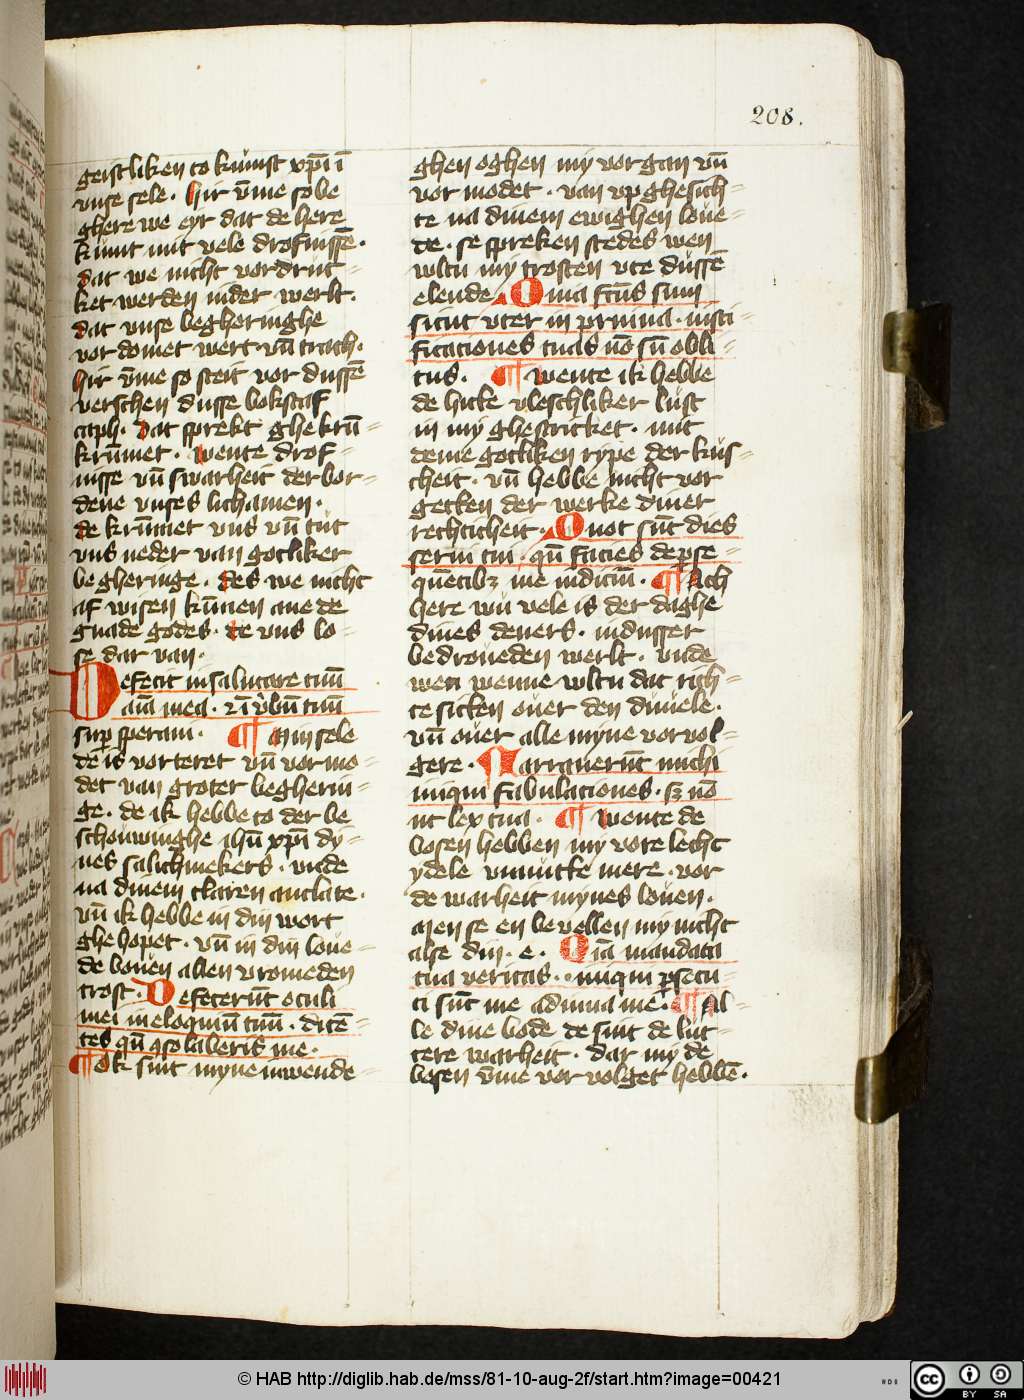 208.
geistliken to kumst xp̄i ī
vnse sele. hir v̄me so be
ghere we eyr dat de here
kumt mit vele drofnissē.
dat we nicht vordruc=
ket werden in der werlt.
dat vnse begheringhe
vor domet wert vn̄ trach.
hir v̄me so steit vor dussē
verschen dusse bokstaf
caph. dat sprekt ghekrū=
krūmet. wente drof=
nisse vn̄ swarheit der bor=
dene vnses lichamen.
de krūmet vns vn̄ tut
vns neder van gotliker
begheringe. des we nicht
af wisen kūnen ane de
gnade godes. de vns lo=
se dar van.
Defecit in salutare tuū
aīa mea. ⁊ī v̓bū tuū
sup̱ speraui. ¶ Min sele
de is vorteret vn̄ vormo=
det van groter begherin=
ge. de ik hebbe to der be
schouwinghe ih̄u xp̄i dy=
nes salichmekers. vnde
na dinem claren anclate.
vn̄ ik hebbe in din wort
ghe hopet. vn̄ in din loue=
de bouen allen vromeden
trost. Defecerūt oculi
mei in eloquiū tuū. dicē=
tes qn̄ ꝯsolaberis me.
¶ Ok sint myne inwende=
ghen oghen my vorgan vn̄
vor modet. van vp ghesich=
te na dinem ewighen loue=
de. se spreken stedes wen
wltu my trosten vte dussē
elende. Quia fc̄us sum
sicut vter in pruina. iusti=
ficaciones tuas nō sū obli=
tus. ¶ wente ik hebbe
de hicke vleschliker lust
in my ghestricket. mit
deme gotliken rype der kus=
cheit. vn̄ hebbe nicht vor
getten der werke diner
rechticheit. Quot sūt dies
serui tui. qn̄ facies de p̱se=
quentibꝫ me iudiciū. ¶ Och
here wu vele is der daghe
dines deners. in dusser
bedroueden werlt. vnde
wen wenne wltu dat rich=
te sitten ouer den duuele.
vn̄ ouer alle myne vorvol=
gere. Narrauerūt michi
iniqui fabulaciones. sꝫ nō
ut lex tua. ¶ wente de
bosen hebben my vore lecht
ydele vnnutte mere. vor
de warheit mynes louen.
Men se en beuellen my nicht
alse din. e. Oīa mandata
tua veritas. iniqui p̱secu=
ti sūt me adiuua me. ¶ Al=
le dine bode de sint de lut=
tere warheit. dar my de
bosen v̄me vor volget hebbē.
© HAB http://diglib.hab.de/mss/81-10-aug-2f/start.htm?image=00421
HAB
cc BY SA